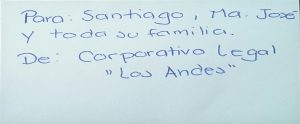 Para: Santiago, Ma. José
y toda su familia.
De: Corporativo Legal
"Los Andes"